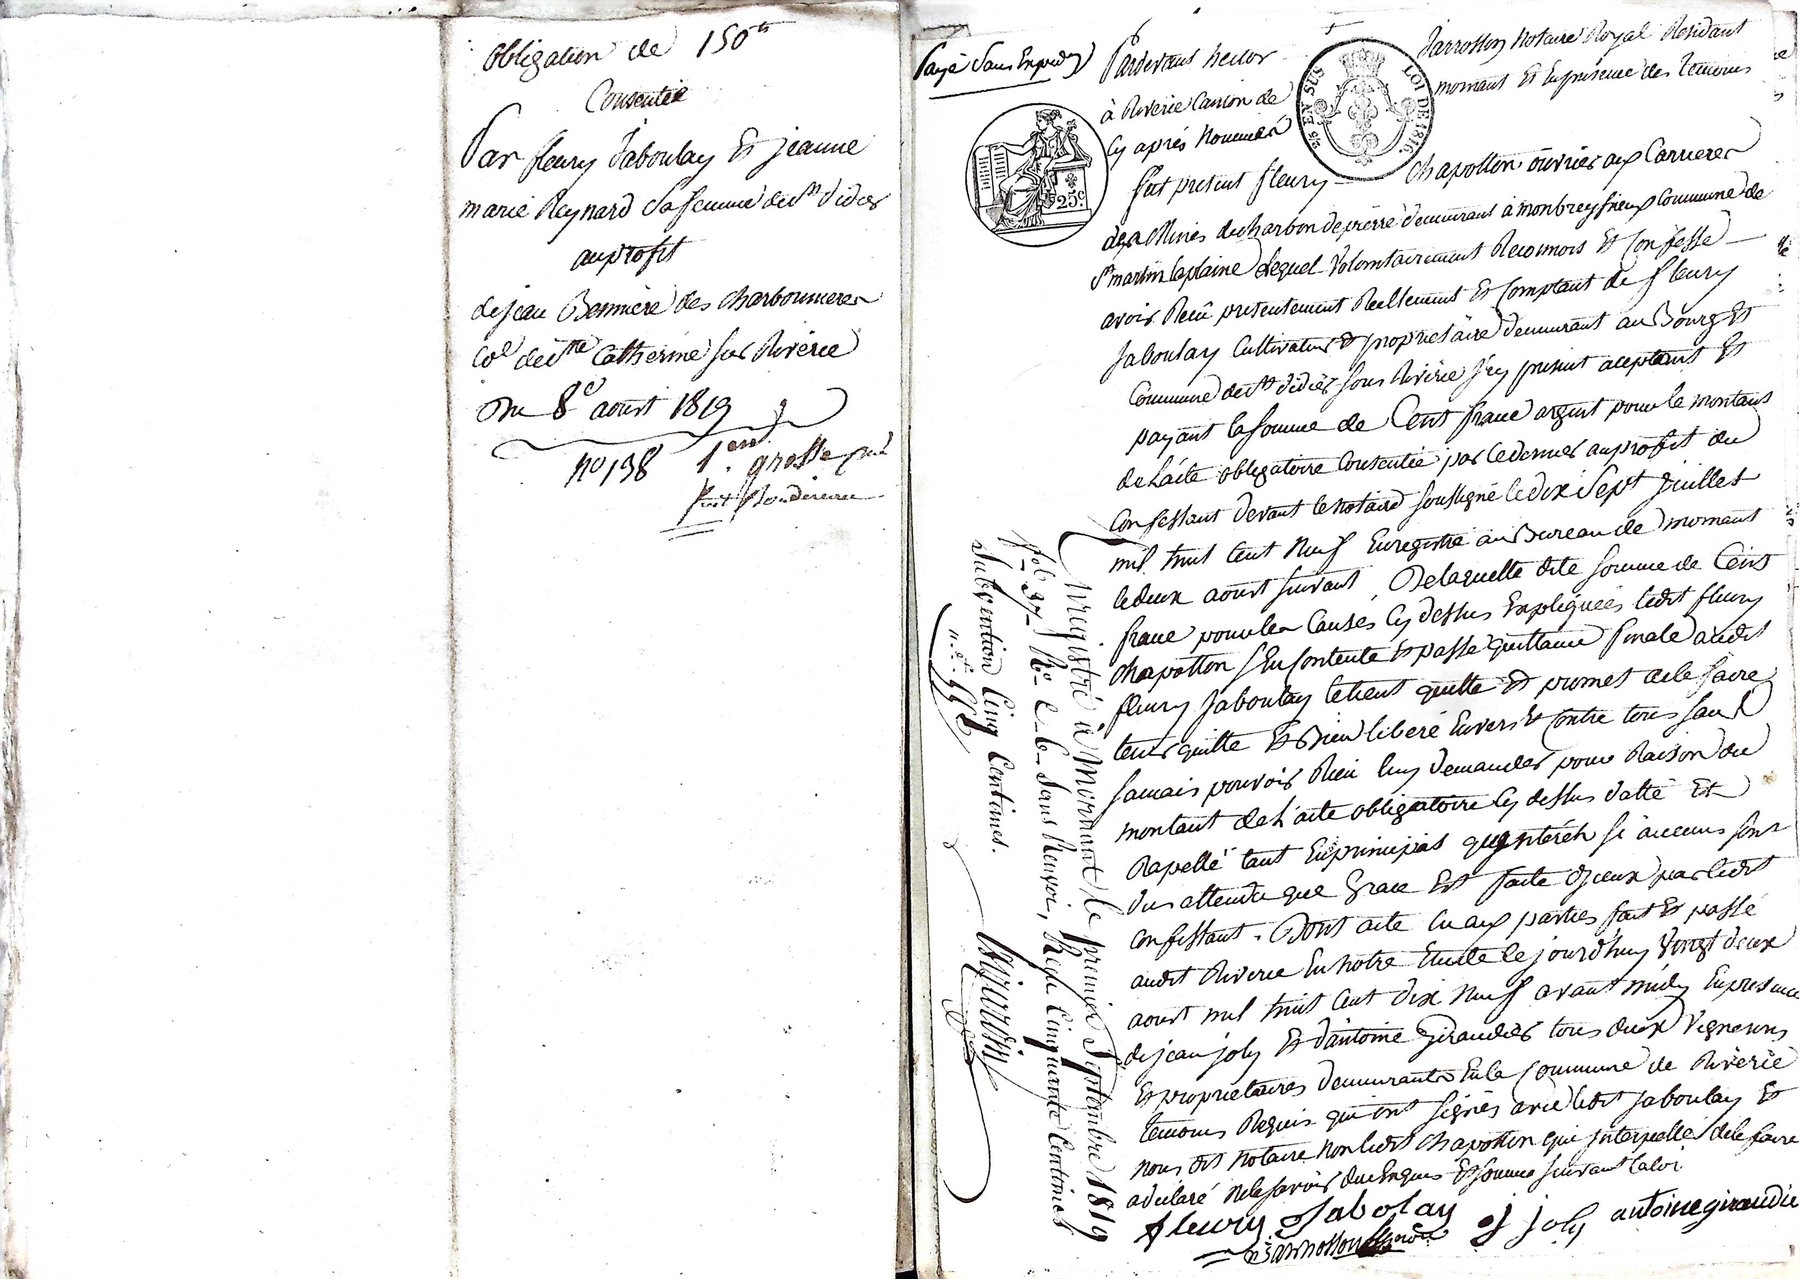 obligation de 150 tt
Consentie
Par fleury Jaboulay et jeanne
marie Reynard sa femme de st didier
au profit
de jean Bonniere des charbonnieres
Col de ste Catherine sur Riverie
Du 8e aoust 1819
no 198 1ere grosse
Payé Sans Expedon
Pardevant hector Jarrosson Notaire Royal Residant
à Riverie Canton de mornant Et En presence des temoins
Cy après Nommés
fut present fleury Chapotton ouvrier aux Carrieres
des Mines de charbon de pierre demeurant à monbreysieux Commune de
st martin laplaine Lequel Volontairement Reconnois et Confesse
avoir Recû presentement Reellement et Comptant de fleury
Jaboulay Cultivateur et proprietaire demeurant au Bourg et
Commune de st didier sous Riverie Jcy present aceptant et
payant la somme de Cent franc argent pour le montant
de L'acte obligatoire Consentie par ce dernier au profit du
Confessant devant le Notaire soussigné le dix Sept juillet
mil huit Cent Neuf Enregistré au Bureau de mornant
le deux aoust suivant, De laquelle dite somme de Cent
franc pour les Causes Cy dessus Expliquées ledit fleury
Chapotton s'En Contente et passe quittance finale audit
fleury Jaboulay le tient quitte et promet de le faire
tenir quitte et Bien libéré Envers et Contre tous sans
jamais pouvoir Rien luy demander pour Raison du
montant de L'acte obligatoire Cy dessus datté et
Rapellé tant En principal qu'jnterêts si aucuns sont
dus attendu que Grace Est faite d'jceux par ledit
Confessant. Dont acte lu aux parties fait et passé
audit Riverie En notre Etude le jourd'huy vingt deux
aoust mil huit Cent dix Neuf avant midy En presence
de jean joly et d'antoine Giraudier tous deux Vignerons
et proprietaires demeurants En la Commune de Riverie
temoins Requis qui ont signés avec ledit Jaboulay et
nous dit Notaire Non ledit Chapotton qui jnterpellé de le faire
a déclaré Ne le savoir de ce Enquis et sommé suivant la loi
fleury Jabolay j joly antoine giraudie
Jarrosson
Enregistré à Mornant le premier Septembre 1819
fol. 97 Ro C. 6. Sans Renvoi, Reçu Cinquante Centimes
Subvention Cinq Centimes.
25c
EN SUS
LOI DE 1816.